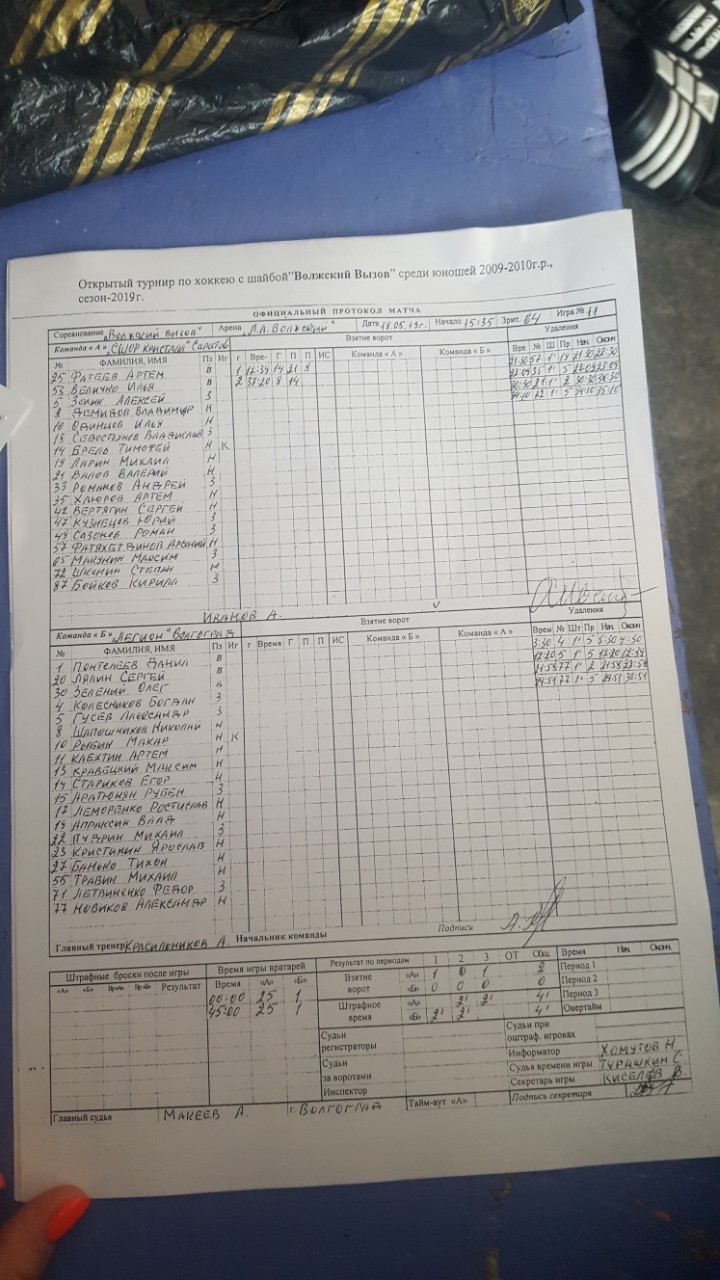 Открытый турнир по хоккею с шайбой"Волжский Вызов" среди юношей 2009-2010г.р.,
сезон-2019г.
ОФИЦИАЛЬНЫЙ ПРОТОКОЛ МАТЧА
Соревнование „Волжский вызов" Арена Дата 18.05.19г. Начало 15:35 Зрит. 64 Игра № 11
Команда « А » „СШОР Кристалл" Саратов Взятие ворот Удаления
№ ФАМИЛИЯ, ИМЯ Пз Иг г Вре- Г П П ИС Команда « А » Команда « Б » Вре № Ш Пр Нач Окон
25 ФАТЕЕВ АРТЕМ В 1 12:39 14 21 8 21:30 57 1' 19 21:30 22:30
53 ВЕЛИЧКО ИЛЬЯ В 2 37:20 8 14
5 ЗОЛИН АЛЕКСЕЙ З
8 ДЕМИДОВ ВЛАДИМИР Н
10 ОДИНЦОВ ИЛЬЯ Н
13 СЕВОСТЬЯНОВ ВЛАДИСЛАВ З
14 БРЕЛЬ ТИМОФЕЙ Н К
19 ЛАРИН МИХАИЛ Н
21 ВАЛОВ ВАЛЕРИЙ Н
33 РОМАНОВ АНДРЕЙ З
35 ХАЮРОВ АРТЕМ Н
42 ВЕРТЯГИН СЕРГЕЙ Н
47 КУЗНЕЦОВ ЮРИЙ З
49 САЗОНОВ РОМАН З
57 ФАТЯХЕТДИНОВ АРСЕНИЙ Н
65 МАКУНИН МАКСИМ З
72 ШКОНИН СТЕПАН Н
87 БОЙКОВ КИРИЛЛ З
ИВАНОВ А.
Команда « Б » „ЛЕГИОН" ВОЛГОГРАД Взятие ворот Удаления
№ ФАМИЛИЯ, ИМЯ Пз Иг г Время Г П П ИС Команда « Б » Команда « А » Врем № Шт Пр Нач Окон
1 ПОНТЕЛЕЕВ ДАНИЛ В 3:30 4 1' 5 3:30 4:30
20 ЛЯЛИН СЕРГЕЙ В 12:20 5 1' 5 12:20 12:39
30 ЗЕЛЕНЫЙ ОЛЕГ 21:58 77 1' 2 21:58 22:58
4 КОЛЕСНИКОВ БОГДАН З 29:51 77 1' 5 29:51 30:51
5 ГУСЕВ АЛЕКСАНДР З
8 ШАПОШНИКОВ НИКОЛАЙ Н
10 РЫБИН МАКАР Н К
11 КЛЕХТИН АРТЕМ Н
13 КРАВЕЦКИЙ МАКСИМ Н
14 СТАРИКОВ ЕГОР Н
15 АРАТЮНЯН РУБЕН З
17 ЛЕМОРЕНКО РОСТИСЛАВ Н
19 АПРАКСИН ВЛАД Н
22 ПУДРИН МИХАИЛ З
23 КРИСТИНИН ЯРОСЛАВ Н
27 БАНЬКО ТИХОН Н
55 ТРАВИН МИХАИЛ Н
71 ЛЕТВИНЕНКО ФЕДОР З
77 НОВИКОВ АЛЕКСАНДР Н
Главный тренер КРАСИЛЬНИКОВ А. Начальник команды Подписи
Штрафные броски после игры Время игры вратарей Результат по периодам 1 2 3 ОТ Общ Время Нач. Оконч.
«А» «Б» Вр«А» Вр«Б» Результат Время «А» «Б» Взятие ворот «А» 1 0 1 2 Период 1
00:00 25 1 «Б» 0 0 0 0 Период 2
45:00 25 1 Штрафное время «А» 2' 2' 4' Период 3
«Б» 2' 2' 4' Овертайм
Судьи регистраторы Судьи при оштраф. игроках
Информатор ХОМУТОВ Н
Судьи за воротами Судья времени игры ТУРАШКИН С.
Секретарь игры КИСЕЛЕВ В.
Инспектор Подпись секретаря
Главный судья МАКЕЕВ А. г. ВОЛГОГРАД Тайм-аут «А»